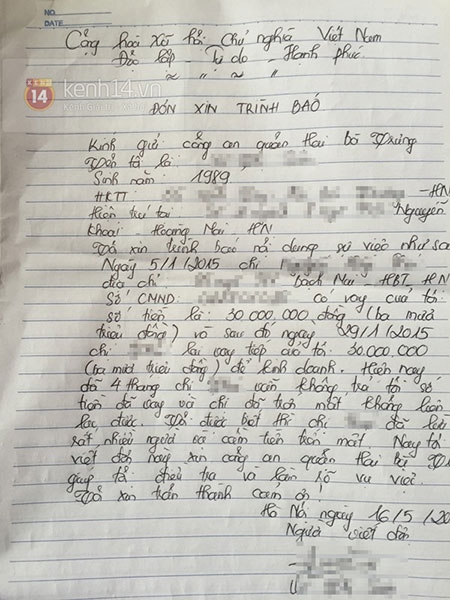 NO.
DATE
Cộng hoà Xã hội Chủ nghĩa Việt Nam
Độc lập _ Tự do _ Hạnh phúc
kenh14.vn
14
ĐƠN XIN TRÌNH BÁO
Kính gửi công an quận Hai Bà Trưng
Tôi tên là
Sinh năm 1989
HKTT - HN
Hiện trú tại Nguyễn
Khoái - Hoàng Mai - HN
Tôi xin trình báo nội dung sự việc như sa
Ngày 5/1/2015 chị
địa chỉ Bách Mai - HBT - HN
Số CMND: có vay của tôi
số tiền là: 30.000.000 đồng (ba mươi
triệu đồng) và sau đó ngày 29/1/2015
chị lại vay tiếp của tôi 30.000.000
(ba mươi triệu đồng) để kinh doanh. Hiện nay
đã 4 tháng chị vẫn không trả tôi số
tiền đã vay và chị đã trốn mất không liên
lạc được. Tôi được biết thì chị đã lừa
rất nhiều người và cầm tiền trốn mất. Nay tôi
viết đơn này xin công an quận Hai Bà
giúp tôi điều tra và làm rõ vụ việc.
Tôi xin trân thành cảm ơn!
Hà Nội ngày 16/5/20
Người viết đơn